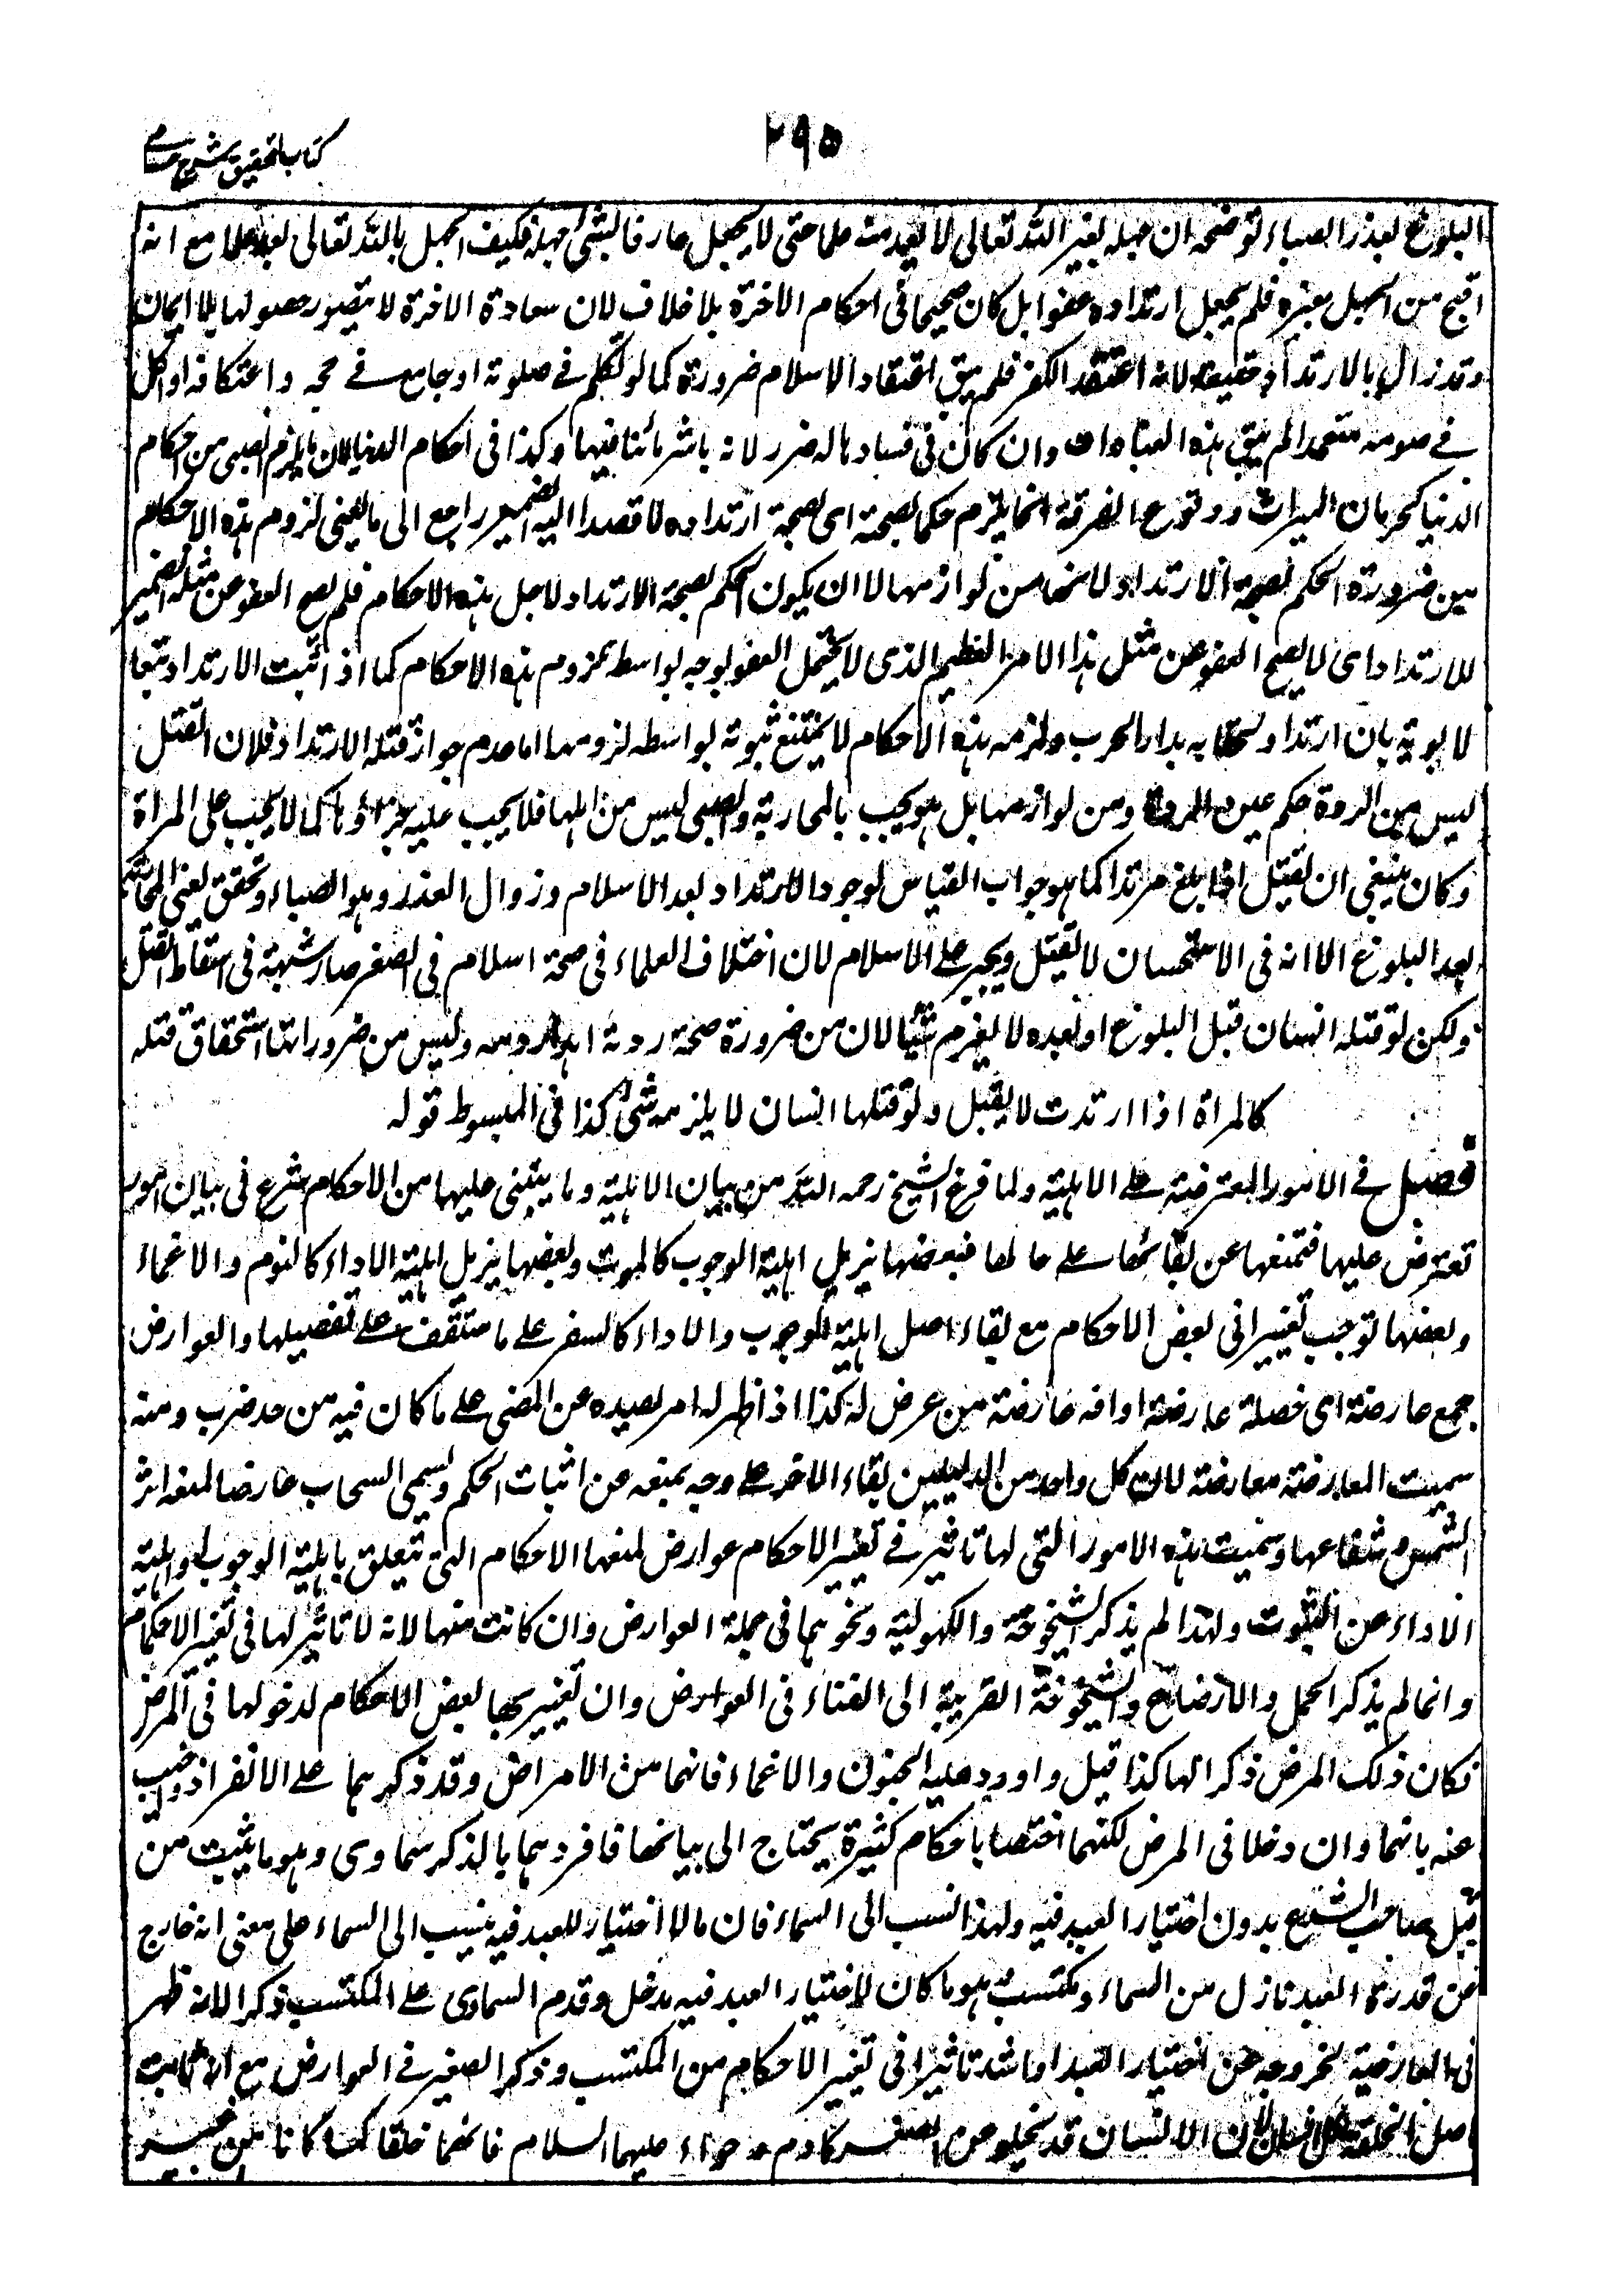 ٢٩٥
كتاب التحقيق شرح حسامي
البلوغ بعذر الصباء توضحه ان جهله بغير الله تعالى لا يعد منه علما حتى لا يجعل عارفا لشئ جهله فكيف الجهل بالله تعالى يعد علما مع انه
اقبح من الجهل بغيره فلم يجعل ارتداده عفوا بل كان صحيحا فى احكام الاخرة بلا خلاف لان سعادة الاخرة لا يتصور حصولها بلا ايمان
وقد زال بالارتداد حقيقة لانه اعتقد الكفر فلم يبق اعتقاد الاسلام ضرورة كما لو تكلم فے صلوته او جامع فے حجه واعتكافه او اكل
فے صومه متعمدا لم يبق هذه العبادات وان كان فى فسادها له ضرر لانه باشر ما ينافيها وكذا فى احكام الدنيا لان ما يلزم الصبى من احكام
الدنيا كحرمان الميراث ووقوع الفرقة انما يلزم حكما لصحته اى لصحة ارتداده لا قصدا اليه الضمير راجع الى ما يعنى لزوم هذه الاحكام
من ضرورة الحكم بصحة الارتداد لانها من لوازمها لا ان يكون الحكم لصحة الارتداد لاجل هذه الاحكام فلم يصح العفو عن مثله الضمير
للارتداد اى لا يصح العفو عن مثل هذا الامر العظيم الذى لا يحتمل العفو بوجه بواسطة لزوم هذه الاحكام كما اذا ثبت الارتداد تبعا
لابويه بان ارتدا ولحقا به بدار الحرب ولزمه هذه الاحكام لا يمتنع ثبوته بواسطه لزومها اما عدم جواز قتله الارتداد فلان القتل
ليس من الردة حكم عين الردة ومن لوازمها بل هو يجب بالمحاربة والصبى ليس من اهلها فلا يجب عليه جزاؤها كما لا يجب على المراة
وكان ينبغى ان يقتل اذا بلغ مرتدا كما هو جواب القياس لوجود الارتداد بعد الاسلام وزوال العذر وهو الصباء وتحقق يعنى المحاربة
بعد البلوغ الا انه فى الاستحسان لا يقتل ويجبر على الاسلام لان اختلاف العلماء فى صحة اسلام فى الصغر صار شبهة فى اسقاط القتل
ولكن لو قتله انسان قبل البلوغ او بعده لا يغرم شيئا لان من ضرورة صحة ردته اهدار دمه وليس من ضروراتها استحقاق قتله
كالمراة اذا ارتدت لا يقتل ولو قتلها انسان لا يلزمه شئ كذا فى المبسوط قوله
فصل فے الامور المعترضة على الاهلية ولما فرغ الشيخ رحمه الله من بيان الاهلية وما يبتنى عليها من الاحكام شرع فى بيان امور
تعترض عليها فتمنعها عن بقائها على حالها فبعضها يزيل اهلية الوجوب كالموت وبعضها يزيل اهلية الاداء كالنوم والاغماء
وبعضها توجب تغييرا فى بعض الاحكام مع بقاء اصل اهلية الوجوب والاداء كالسفر على ما ستقف على تفصيلها والعوارض
جمع عارضة اى خصلة عارضة او افة عارضة من عرض له كذا اذا ظهر له امر يصده عن المضى على ما كان فيه من حد ضرب ومنه
سميت المعارضة معارضة لان كل واحد من الدليلين يقابل الاخر على وجه يمنعه عن اثبات الحكم ويسمى السحاب عارضا لمنعه اثر
الشمس وشعاعها وسميت هذه الامور التى لها تاثير فے تغيير الاحكام عوارض لمنعها الاحكام التى تتعلق باهلية الوجوب او اهلية
الاداء عن الثبوت ولهذا لم يذكر الشيخوخة والكهولة ونحوهما فى جملة العوارض وان كانت منها لانه لا تاثير لها فى تغيير الاحكام
وانما لم يذكر الحمل والارضاع والشيخوخة القريبة الى الفناء فى العوارض وان تغيير بها بعض الاحكام لدخولها فى المرض
فكان ذلك المرض ذكرا لها كذا قيل واورد عليه الجنون والاغماء فانهما من الامراض وقد ذكرهما على الانفراد واجيب
عنه بانهما وان دخلا فى المرض لكنهما اختصا باحكام كثيرة يحتاج الى بيانها فافردهما بالذكر سماوى وهو ما يثبت من
قبل صاحب الشرع بدون اختيار العبد فيه ولهذا نسب الى السماء فان ما لا اختيار للعبد فيه ينسب الى السماء على معنى انه خارج
عن قدرة العبد نازل من السماء ومكتسب هو ما كان لاختيار العبد فيه مدخل وقدم السماوى على المكتسب ذكرا لانه ظهر
فى العارضية لخروجه عن اختيار العبد واشد تاثيرا فى تغيير الاحكام من المكتسب وذكر الصغير فے العوارض مع انه ثابت
اصل الخلقة لكل انسان لان الانسان قد يخلو عن الصغر كادم وحواء عليهما السلام فانهما خلقا كما كانا من غير